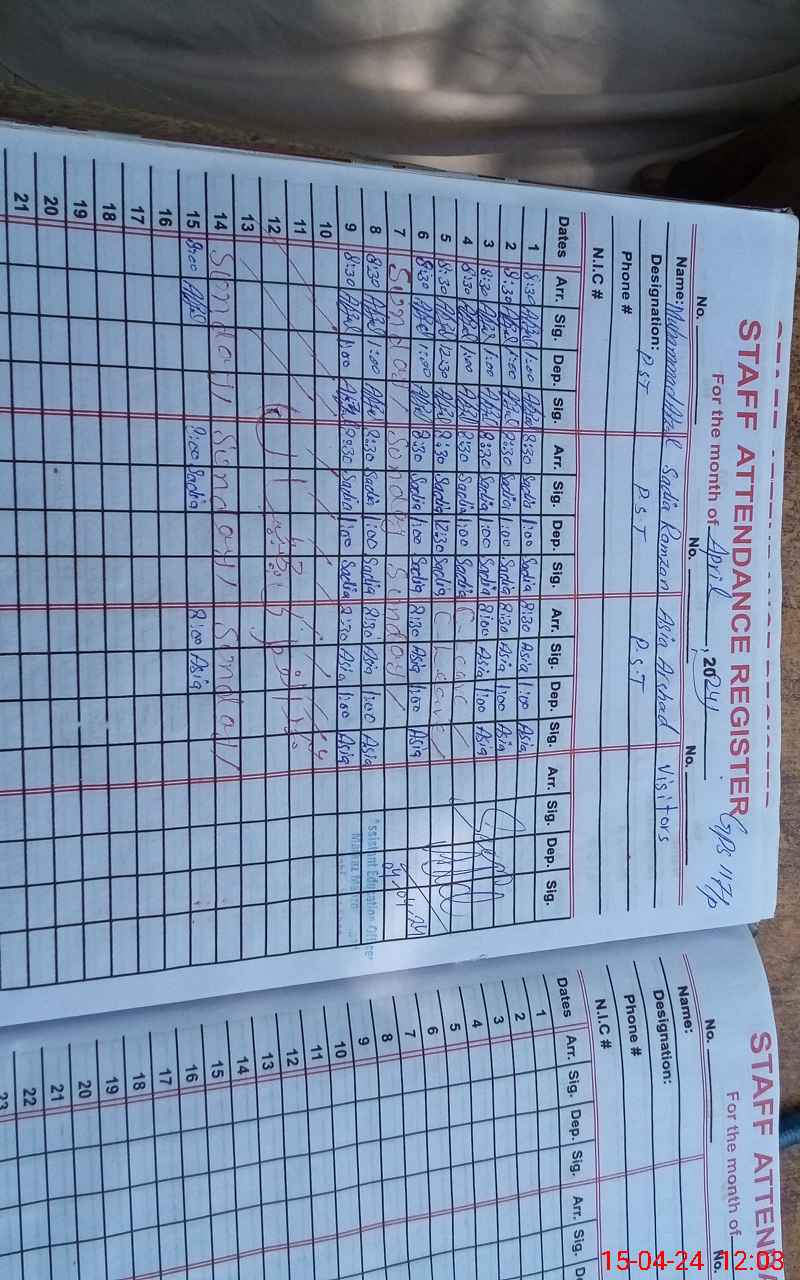 STAFF ATTENDANCE REGISTER GPS 117/P
For the month of April, 2024
No. No. No.
Name: Muhammad Afzal Sadia Ramzan Asia Arshad Visitors
Designation: P.S.T P.S.T P.S.T
Phone #
N.I.C #
Dates Arr. Sig. Dep. Sig. Arr. Sig. Dep. Sig. Arr. Sig. Dep. Sig. Arr. Sig. Dep. Sig.
1 8:30 Afzal 1:00 Afzal 8:30 Sadia 1:00 Sadia 8:30 Asia 1:00 Asia
2 8:30 Afzal 1:00 Afzal 8:30 Sadia 1:00 Sadia 8:30 Asia 1:00 Asia
3 8:30 Afzal 1:00 Afzal 8:30 Sadia 1:00 Sadia 8:00 Asia 1:00 Asia
4 8:30 Afzal 1:00 Afzal 8:30 Sadia 1:00 Sadia C-Leave
5 8:30 Afzal 12:30 Afzal 8:30 Sadia 12:30 Sadia C-Leave
6 8:30 Afzal 1:00 Afzal 8:30 Sadia 1:00 Sadia 8:30 Asia 1:00 Asia
04.04.24
7 Sunday Sunday Sunday
8 8:30 Afzal 1:00 Afzal 8:30 Sadia 1:00 Sadia 8:30 Asia 1:00 Asia
Assistant Education Officer
9 8:30 Afzal 1:00 Afzal 8:30 Sadia 1:00 Sadia 8:30 Asia 1:00 Asia
10
11
12
13
14 Sunday Sunday Sunday
15 8:00 Afzal 8:00 Sadia 8:00 Asia
16
17
18
19
20
21
STAFF ATTE
For the month of
No. No.
Name:
Designation:
Phone #
N.I.C #
Dates Arr. Sig. Dep. Sig. Arr. Sig. De
1
2
3
4
5
6
7
8
9
10
11
12
13
14
15
16
17
18
19
20
21
22
23
15-04-24 12:03